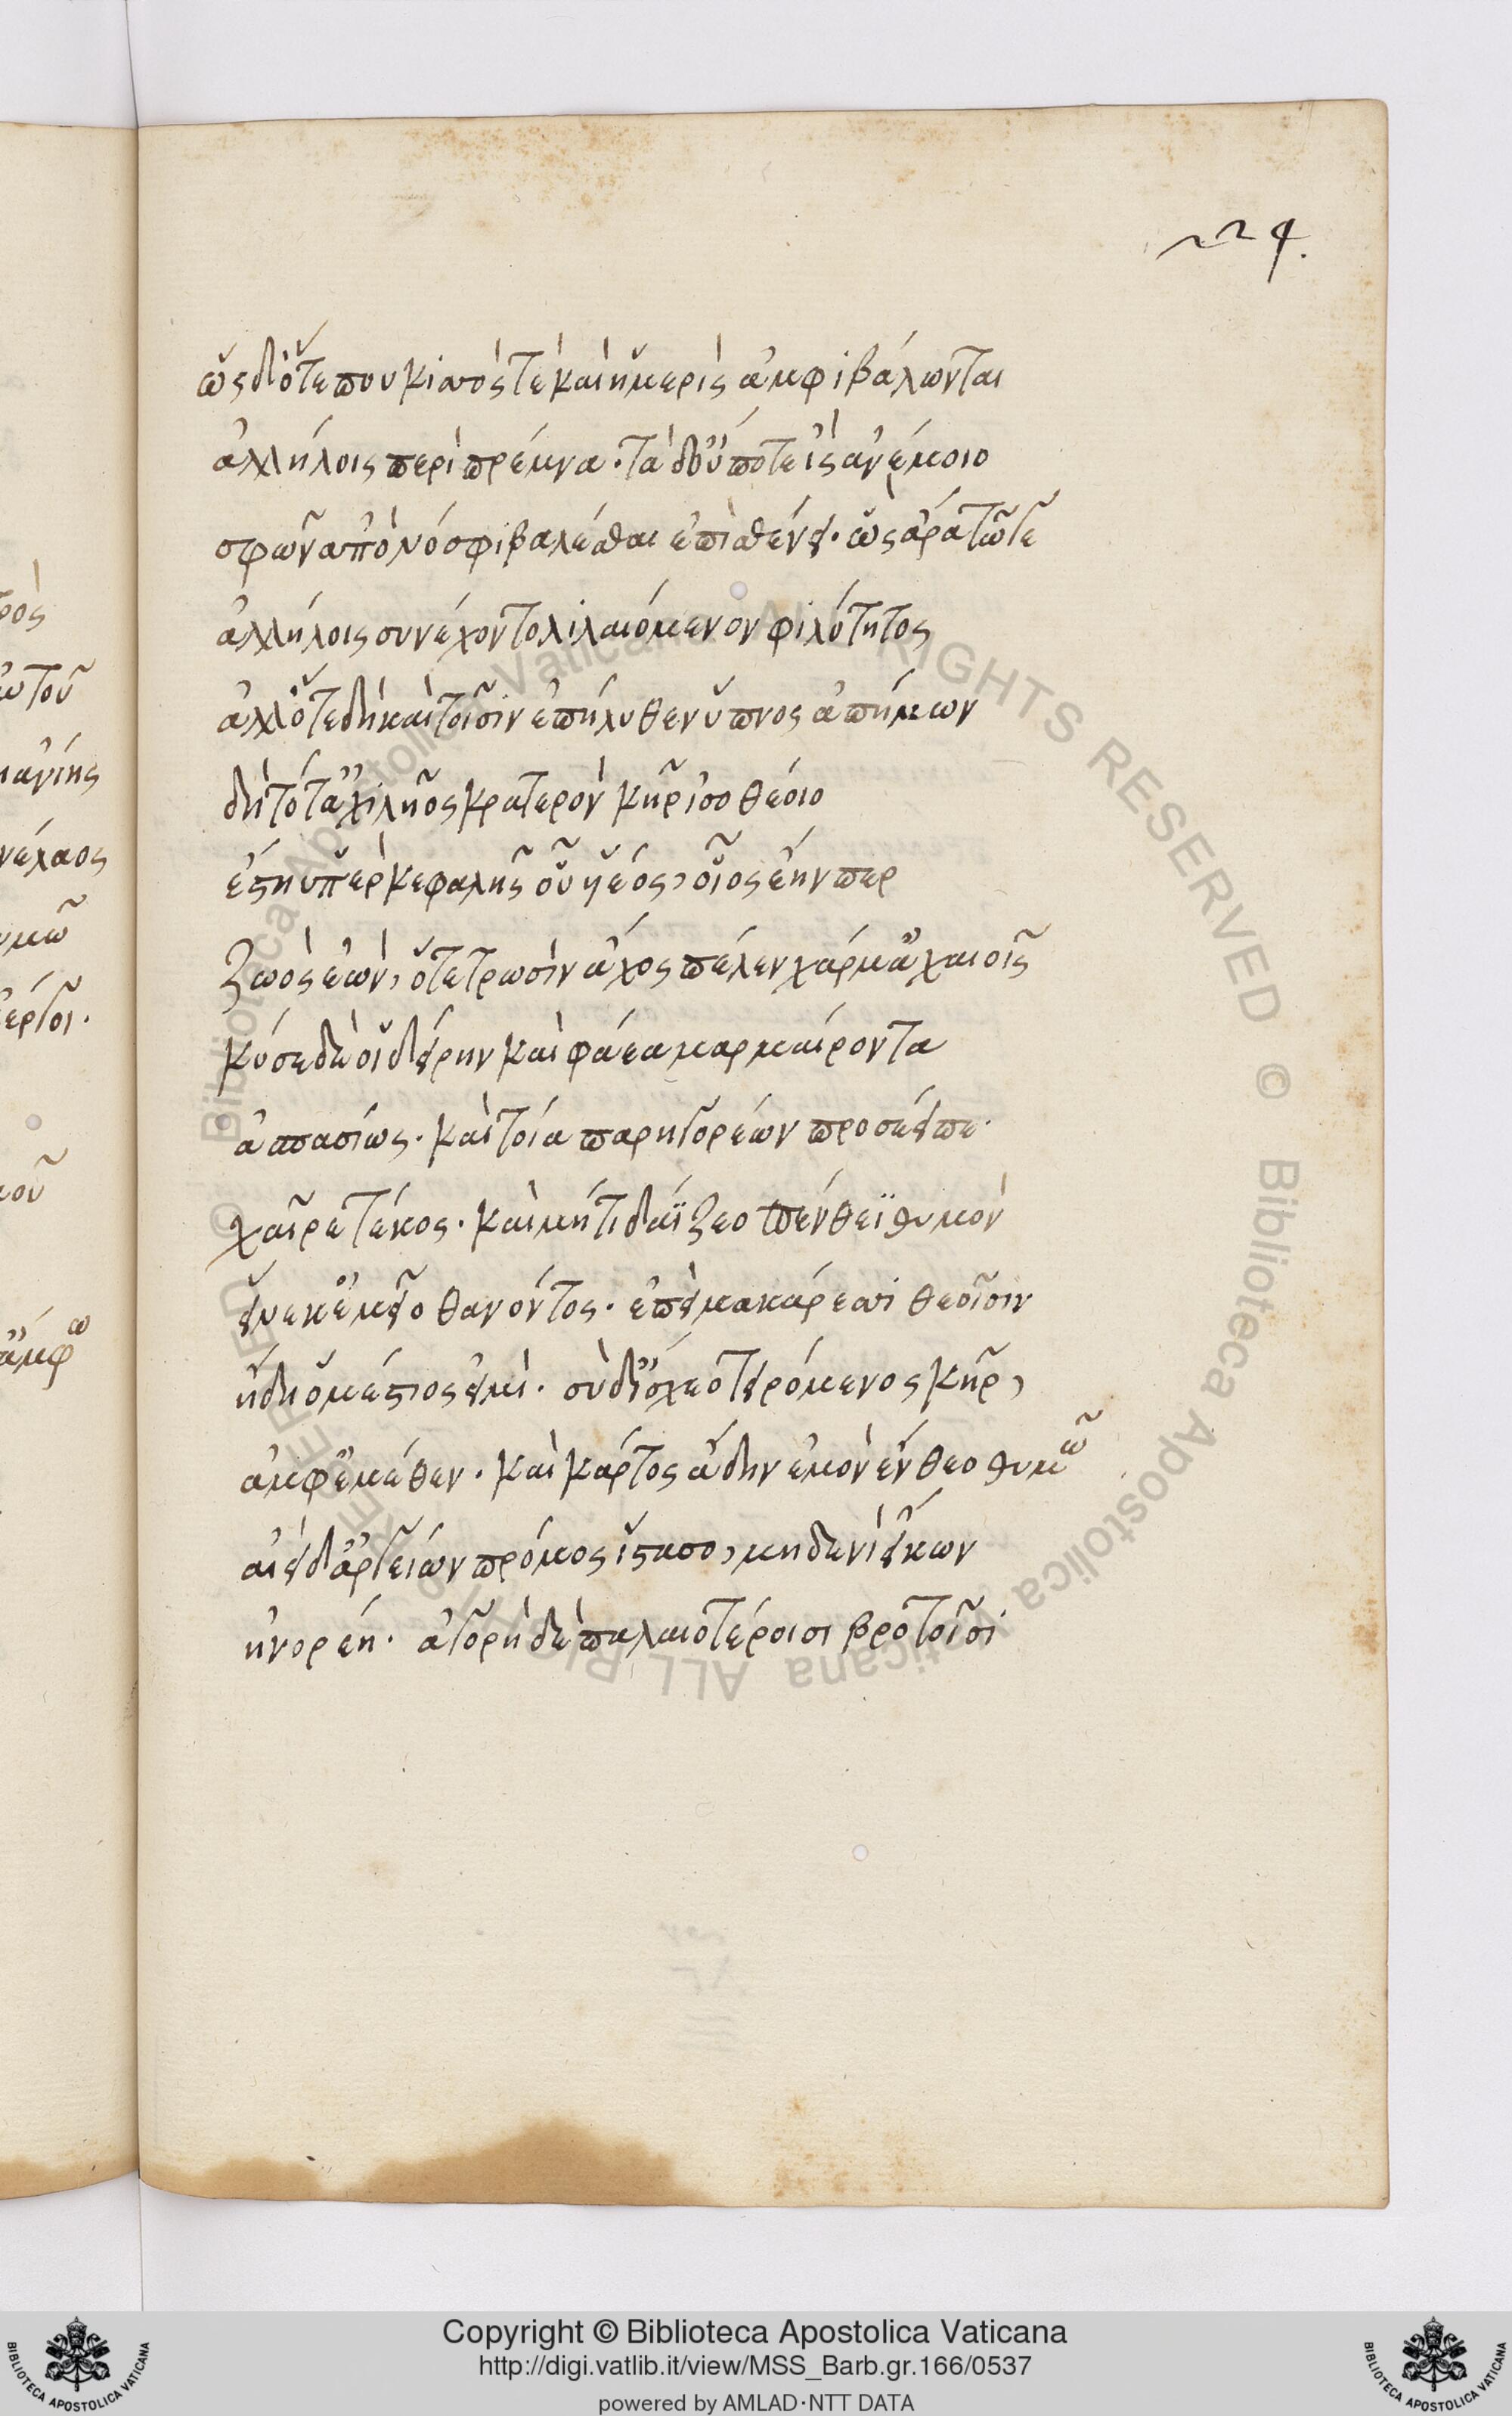 224.
ὡς δ' ὅτε που κισσός τε καὶ ἡμερὶς ἀμφιβάλωνται
ἀλλήλοις περὶ πρέμνα· τὰ δ' οὔποτε ἲς ἀνέμοιο
σφῶν ἀπὸ νόσφι βαλέσθαι ἐπισθένει· ὣς ἄρα τώγε
ἀλλήλοις συνέχοντο λιλαιόμενον φιλότητος
ἀλλ' ὅτε δὴ καὶ τοῖσιν ἐπήλυθεν ὕπνος ἀπήμων
δὴ τότ' ἀχιλῆος κρατερὸν κῆρ ἰσοθέοιο
ἔστη ὑπὲρ κεφαλῆς οὗ υἱέος, οἷος ἔην περ
ζωὸς ἐὼν, ὅτε τρωσὶν ἄχος πέλεν χάρμα ἀχαιοῖς
κύσε δέ οἱ δειρὴν καὶ φάεα μαρμαίροντα
ἀσπασίως· καὶ τοῖα παρηγορέων προσέειπε·
χαῖρε τέκος· καὶ μήτι δαΐζεο πένθεϊ θυμὸν
εἵνεκ' ἐμεῖο θανόντος· ἐπεὶ μακάρεσσι θεοῖσιν
ἤδη ὁμέστιος εἰμί· σὺ δ' ἴσχεο τειρόμενος κῆρ,
ἀμφ' ἐμέθεν· καὶ κάρτος ἄδην ἐμὸν ἔνθεο θυμῷ
αἰεὶ δ' ἀργείων πρόμος ἵστασο, μηδενὶ εἴκων
ἠνορέῃ· ἀγορῇ δὲ παλαιοτέροισι βροτοῖσι
Copyright © Biblioteca Apostolica Vaticana
http://digi.vatlib.it/view/MSS_Barb.gr.166/0537
powered by AMLAD·NTT DATA